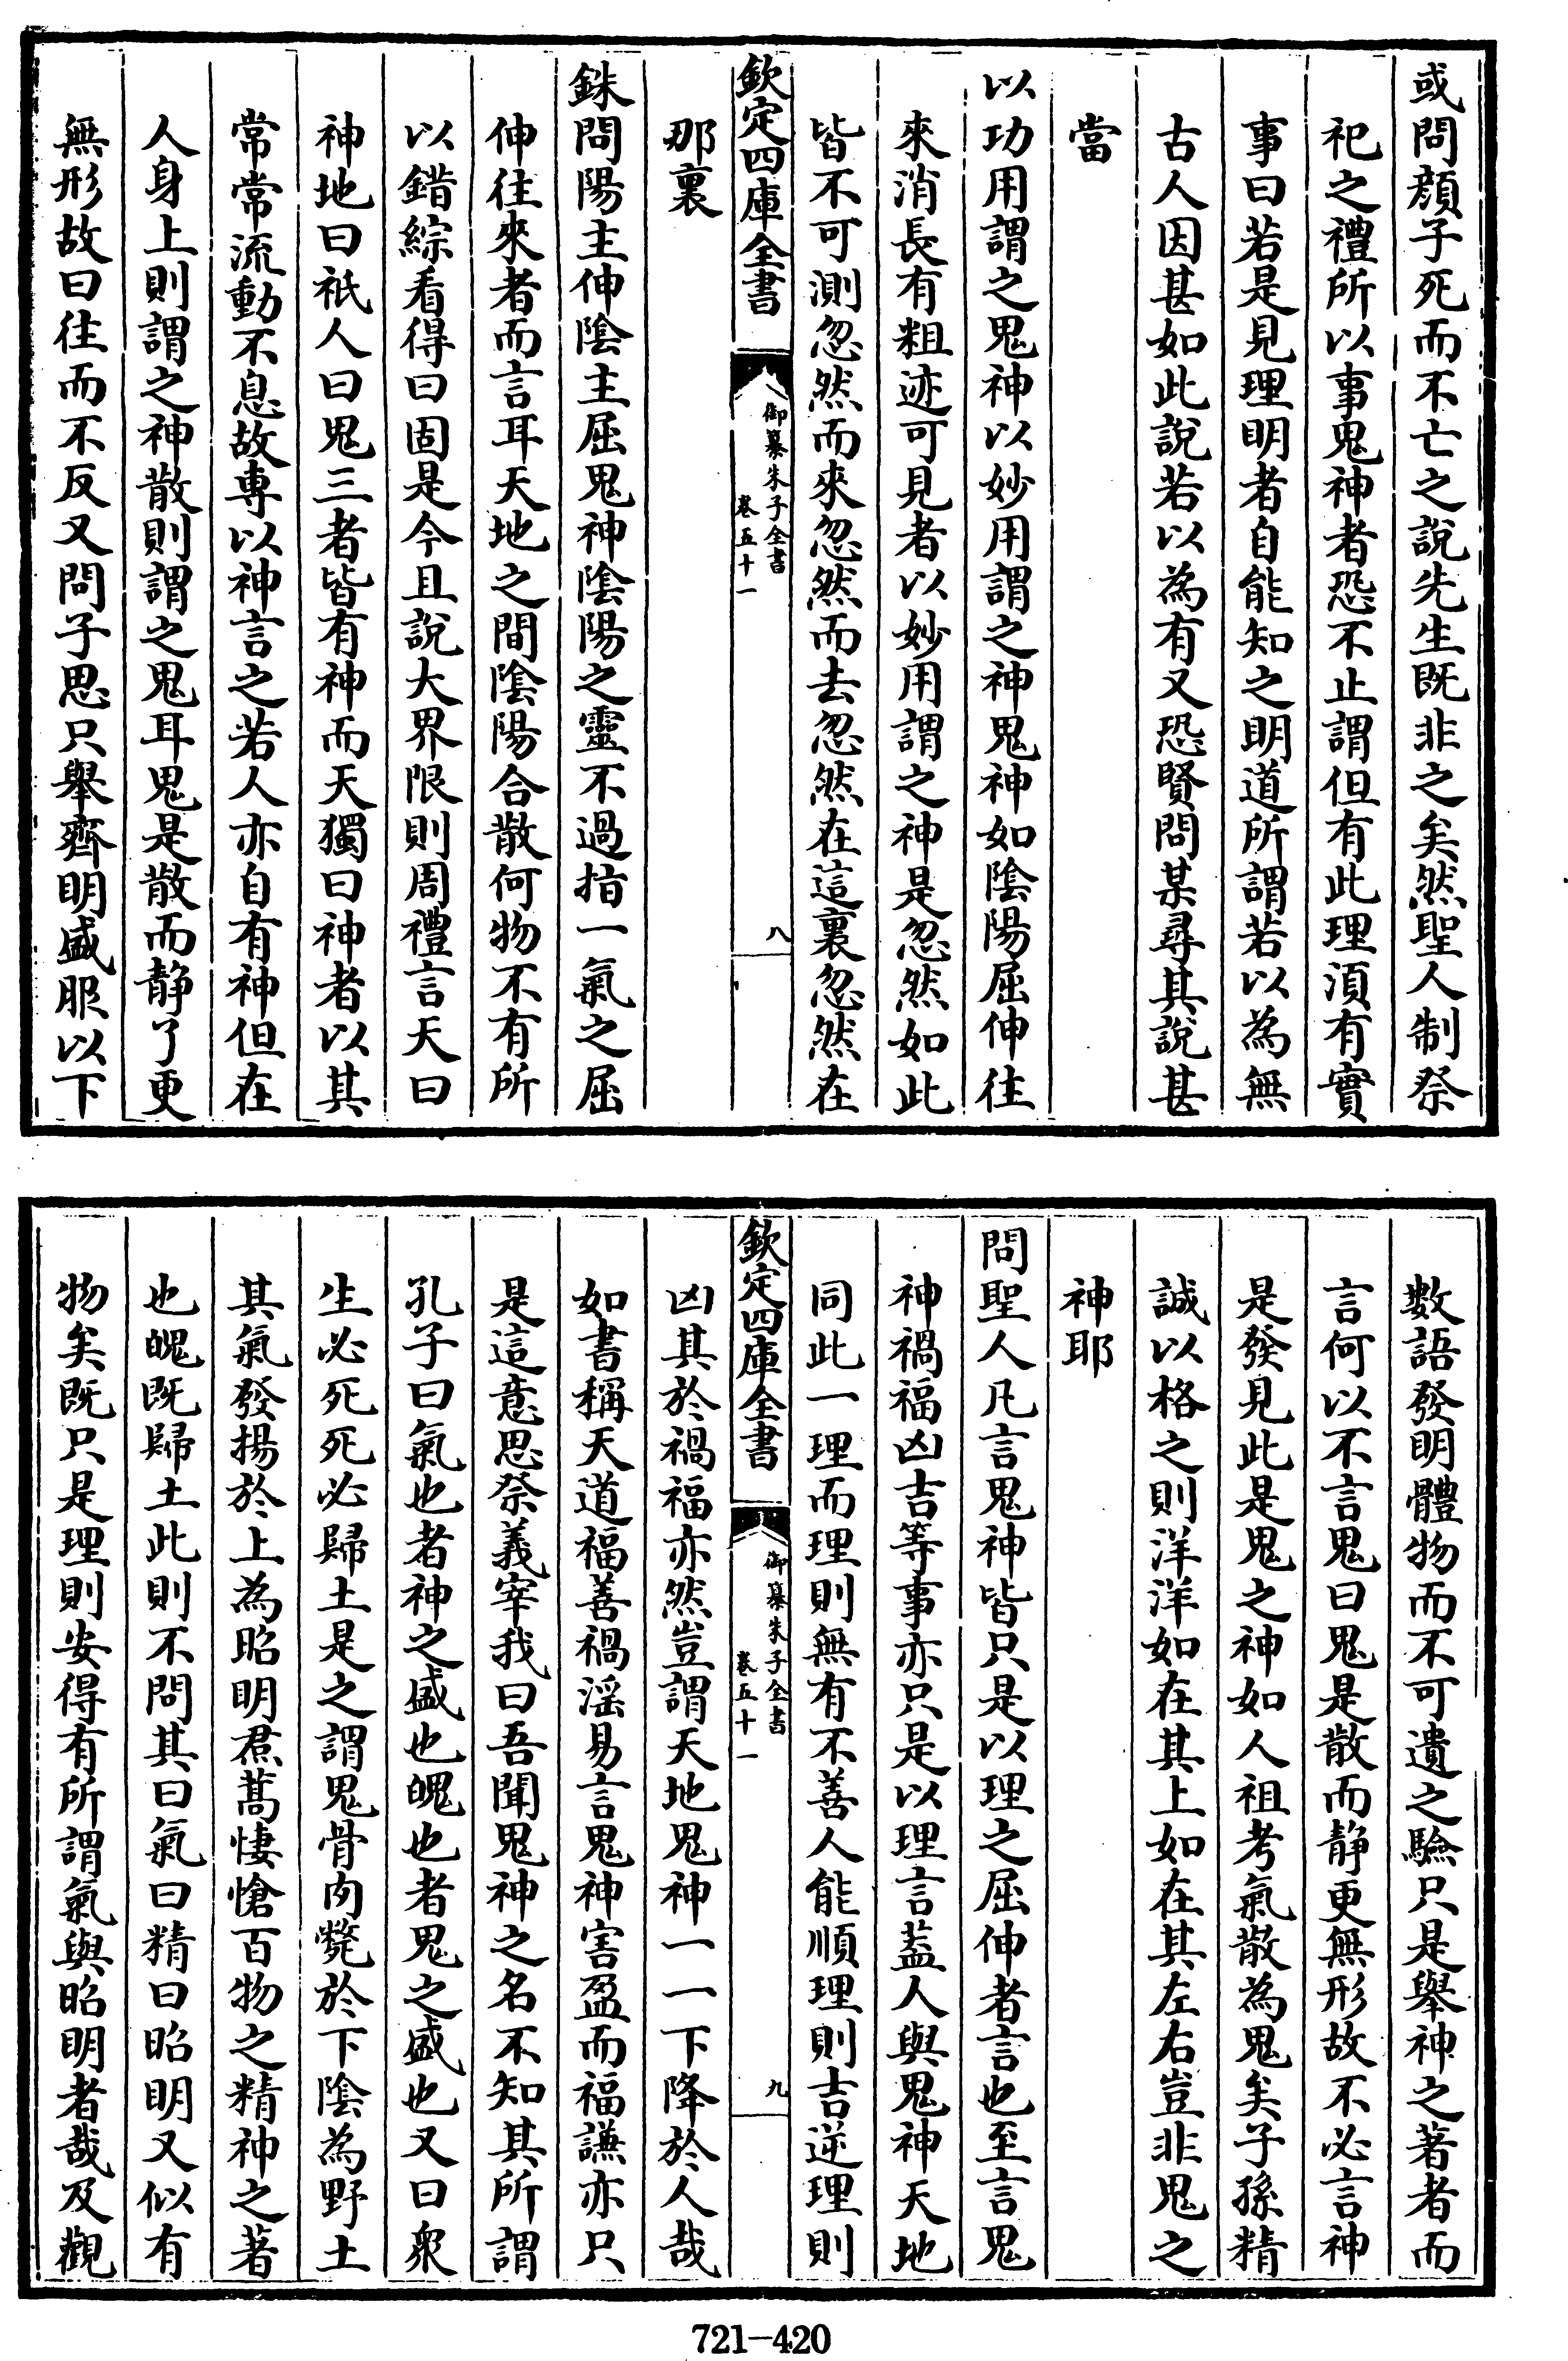 或問顔子死而不亡之說先生既非之矣然聖人制祭
祀之禮所以事鬼神者恐不止謂但有此理須有實
事曰若是見理明者自能知之明道所謂若以為無
古人因甚如此說若以為有又恐賢問某尋其說甚
當
以功用謂之鬼神以妙用謂之神鬼神如陰陽屈伸往
來消長有粗迹可見者以妙用謂之神是忽然如此
皆不可測忽然而來忽然而去忽然在這裏忽然在
欽定四庫全書
御纂朱子全書
卷五十一
八
那裏
銖問陽主伸陰主屈鬼神陰陽之靈不過指一氣之屈
伸往來者而言耳天地之間陰陽合散何物不有所
以錯綜看得曰固是今且說大界限則周禮言天曰
神地曰祇人曰鬼三者皆有神而天獨曰神者以其
常常流動不息故專以神言之若人亦自有神但在
人身上則謂之神散則謂之鬼耳鬼是散而静了更
無形故曰往而不反又問子思只舉齊明盛服以下
數語發明體物而不可遺之驗只是舉神之著者而
言何以不言鬼曰鬼是散而静更無形故不必言神
是發見此是鬼之神如人祖考氣散為鬼矣子孫精
誠以格之則洋洋如在其上如在其左右豈非鬼之
神耶
問聖人凡言鬼神皆只是以理之屈伸者言也至言鬼
神禍福凶吉等事亦只是以理言葢人與鬼神天地
同此一理而理則無有不善人能順理則吉逆理則
欽定四庫全書
御纂朱子全書
卷五十一
九
凶其於禍福亦然豈謂天地鬼神一一下降於人哉
如書稱天道福善禍淫易言鬼神害盈而福謙亦只
是這意思祭義宰我曰吾聞鬼神之名不知其所謂
孔子曰氣也者神之盛也魄也者鬼之盛也又曰衆
生必死死必歸土是之謂鬼骨肉斃於下陰為野土
其氣發揚於上為昭明焄蒿悽愴百物之精神之著
也魄既歸土此則不問其曰氣曰精曰昭明又似有
物矣既只是理則安得有所謂氣與昭明者哉及觀
721-420